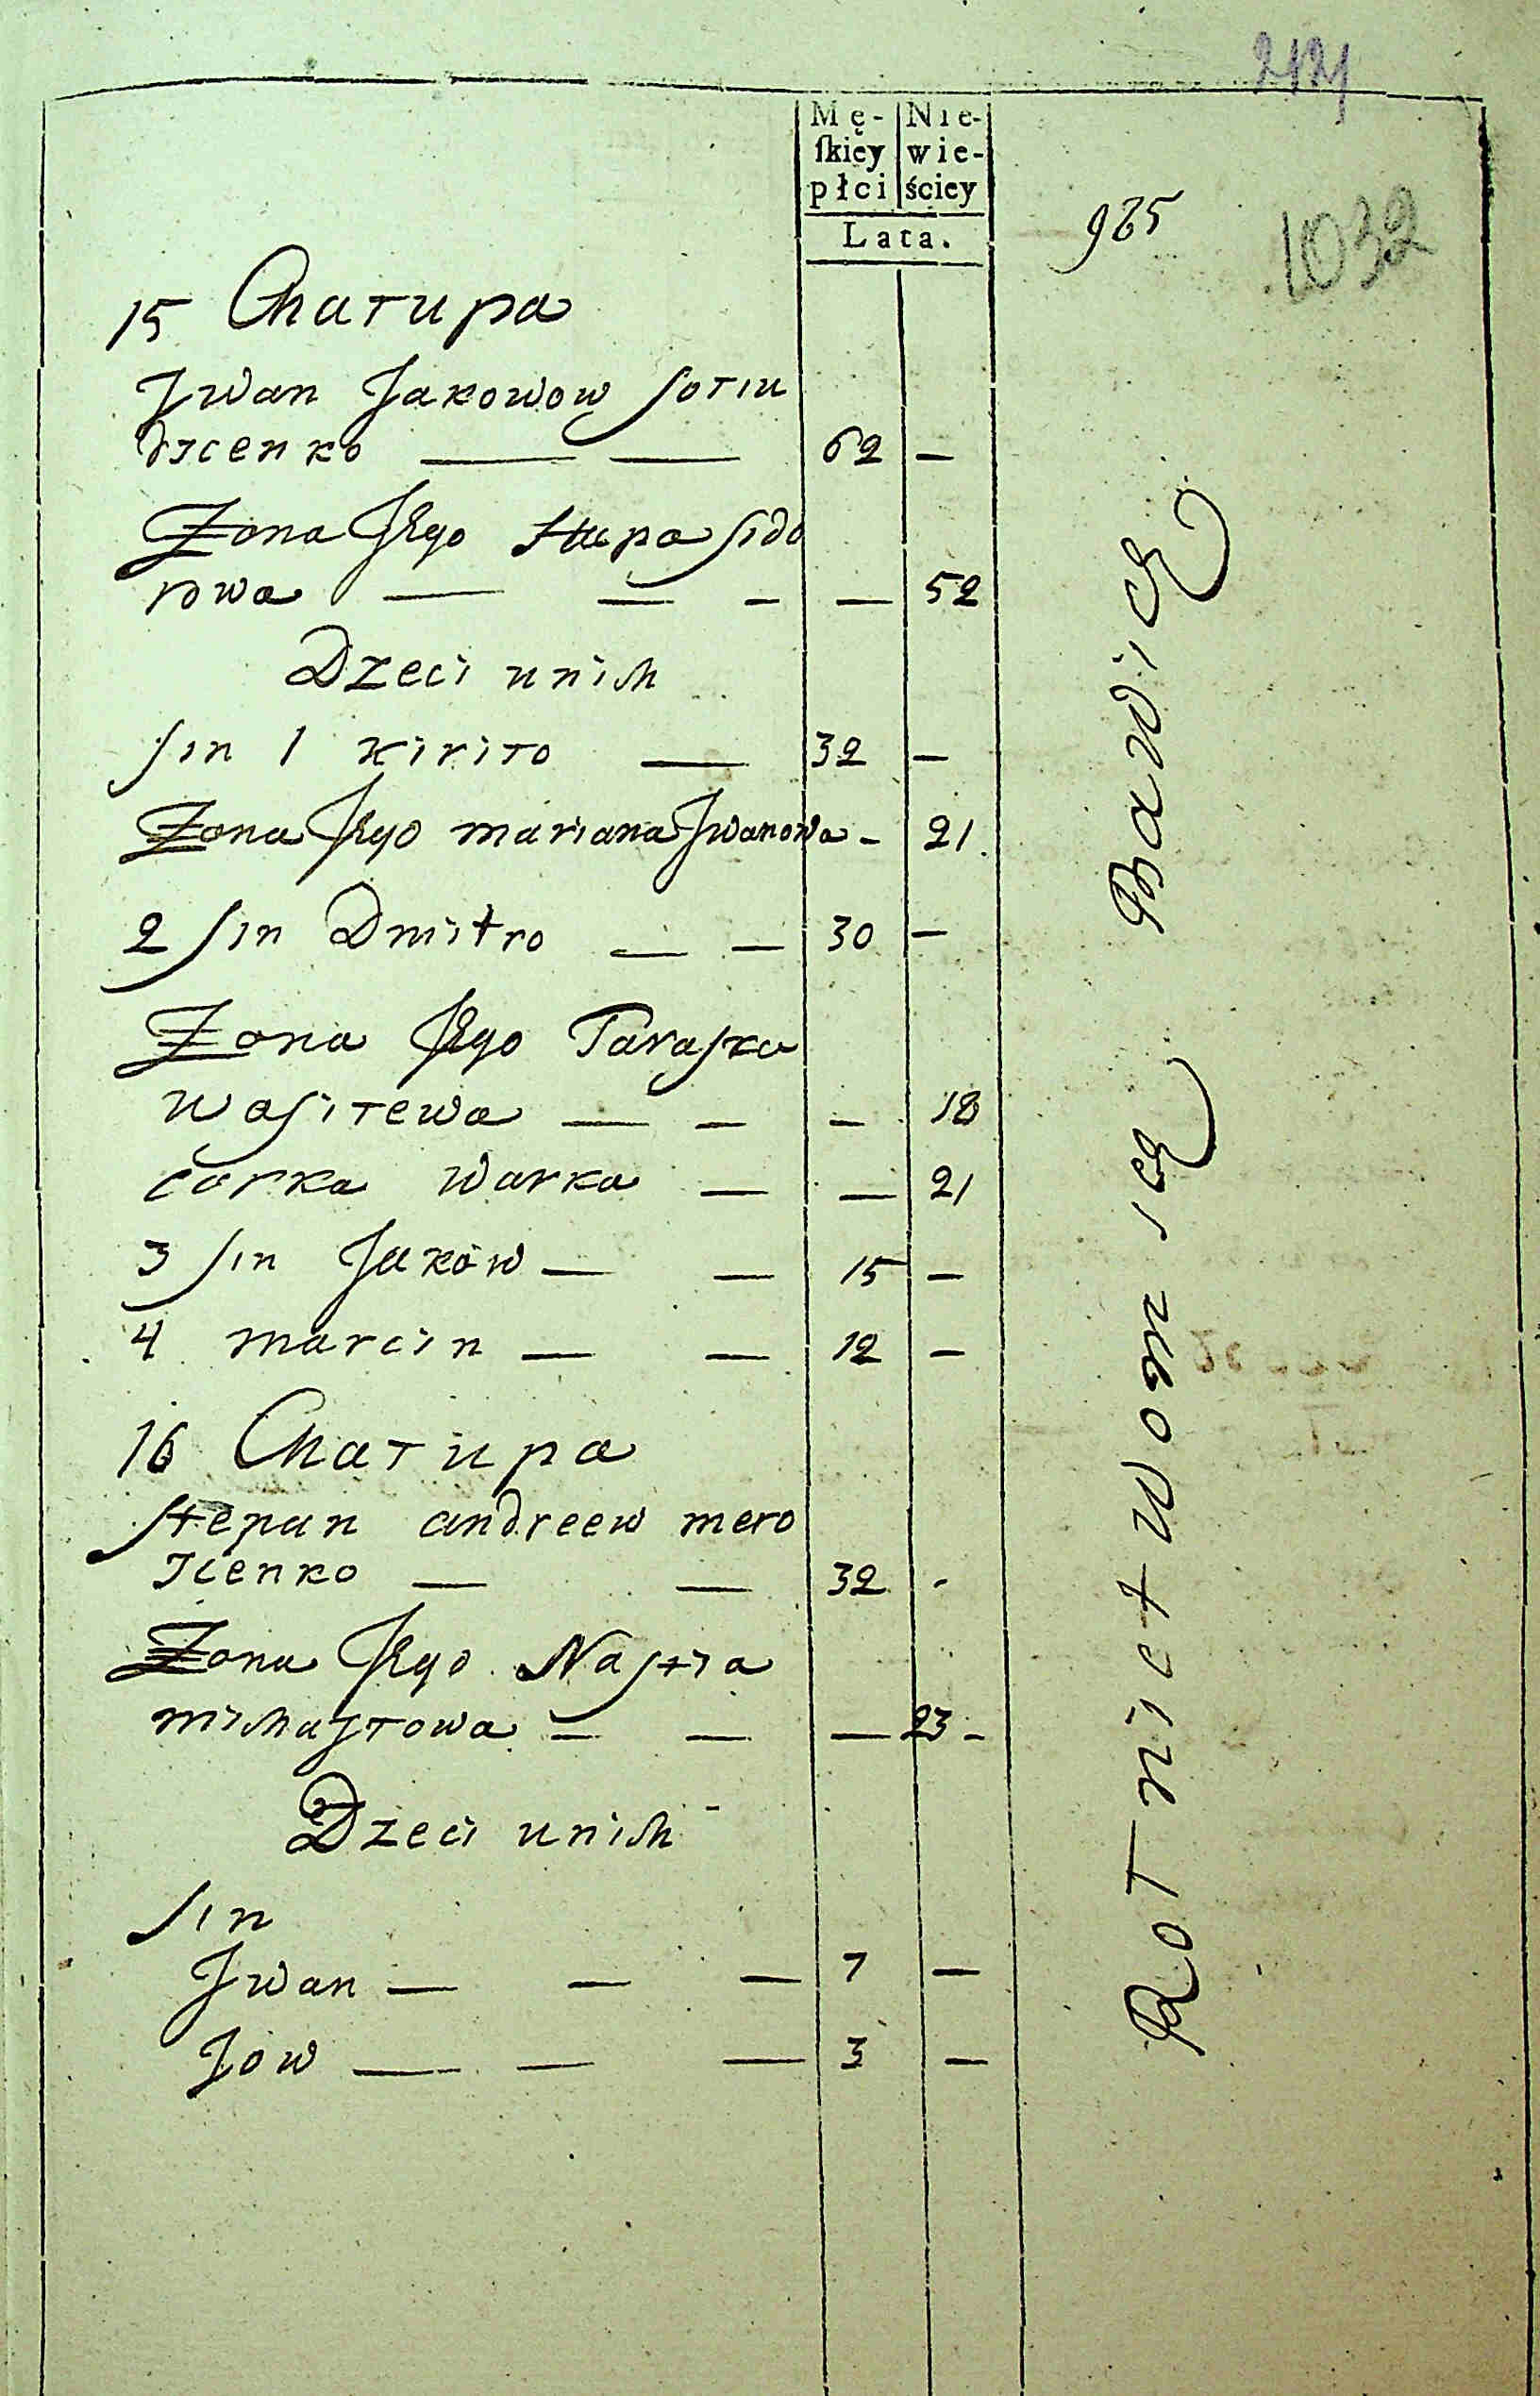 2121
Mę- Nie-
ſkiey wie-
płci ściey
Lata.
985
1032
15 Chałupa
Jwan Jakowow Sołu
Zona Jego Stepa Sido
rowa — — — — 52
Dzeci unich
Sin 1 Kiriło — 32 —
Zona Jego mariana Jwanowa - 21
2 Sin Dmitro — — 30 —
Zona Jego Paraska
wasilewa — — — 18
corka warka — — 21
3 Sin Jakow — — 15 —
4 marcin — — 12 —
16 Chałupa
Stepan andreew mero
szenko — — 32 -
Zona Jego Nastia
michajłowa — — — 23 -
Dzeci unich
Sin
Jwan — — — 7 —
Jow — — — 3 —
Rolnictwom się Bawią